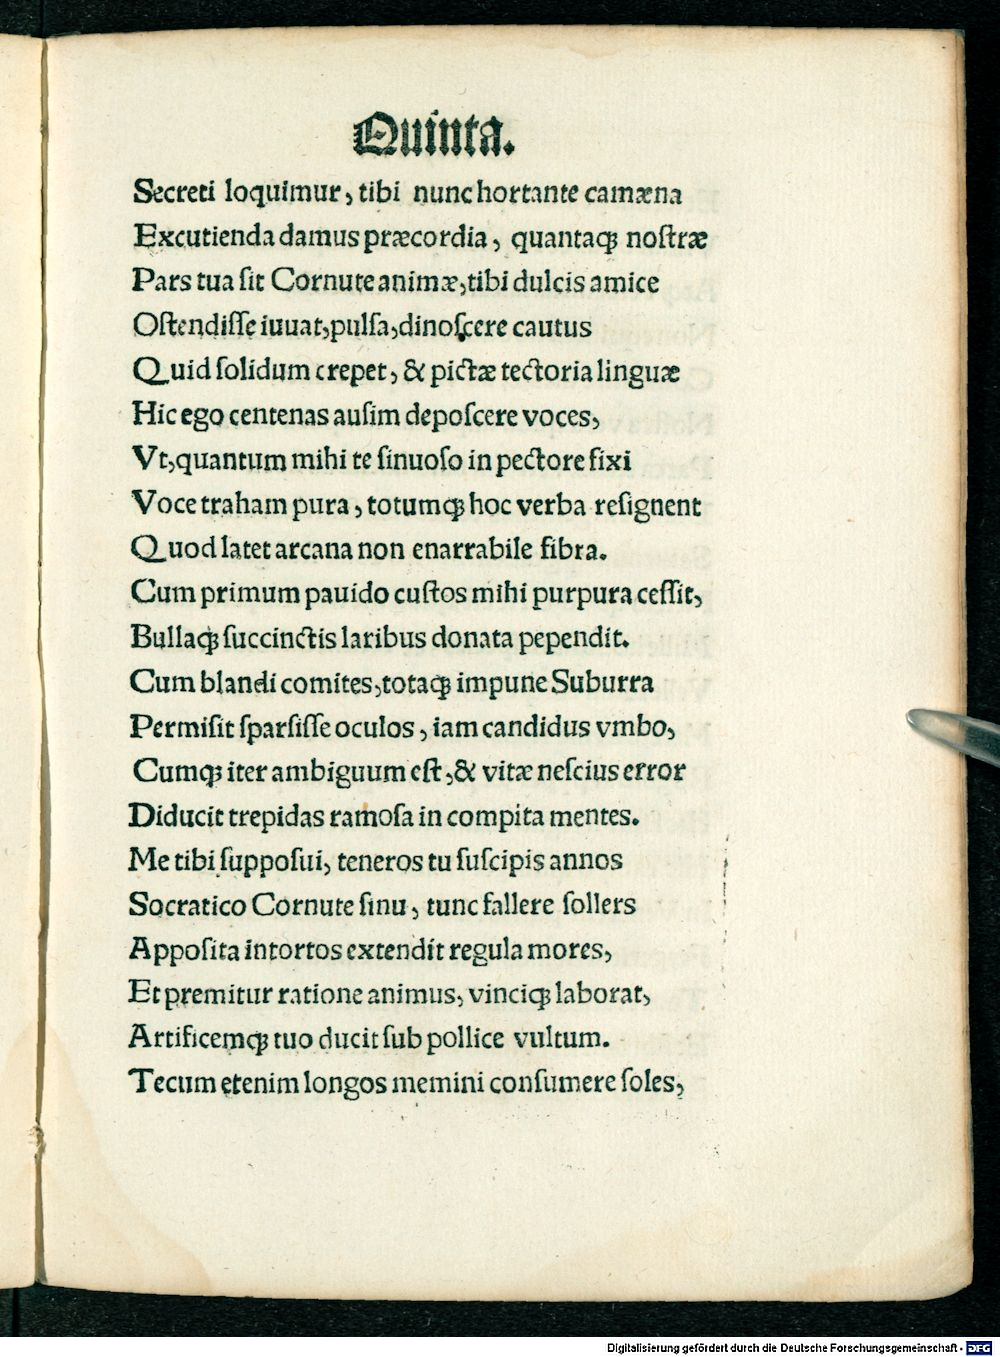 Quinta.
Secreti loquimur, tibi nunc hortante camæna
Excutienda damus præcordia, quantaqꝫ noſtræ
Pars tua ſit Cornute animæ, tibi dulcis amice
Oſtendiſſe iuuat, pulſa, dinoſcere cautus
Quid ſolidum crepet, & pictæ tectoria linguæ
Hic ego centenas auſim depoſcere voces,
Vt, quantum mihi te ſinuoſo in pectore fixi
Voce traham pura, totumqꝫ hoc verba reſignent
Quod latet arcana non enarrabile fibra.
Cum primum pauido cuſtos mihi purpura ceſſit,
Bullaqꝫ ſuccinctis laribus donata pependit.
Cum blandi comites, totaqꝫ impune Suburra
Permiſit ſparſiſſe oculos, iam candidus vmbo,
Cumqꝫ iter ambiguum eſt, & vitæ neſcius error
Diducit trepidas ramoſa in compita mentes.
Me tibi ſuppoſui, teneros tu ſuſcipis annos
Socratico Cornute ſinu, tunc fallere ſollers
Appoſita intortos extendit regula mores,
Et premitur ratione animus, vinciqꝫ laborat,
Artificemqꝫ tuo ducit ſub pollice vultum.
Tecum etenim longos memini conſumere ſoles,
Digitalisierung gefördert durch die Deutsche Forschungsgemeinschaft - DFG